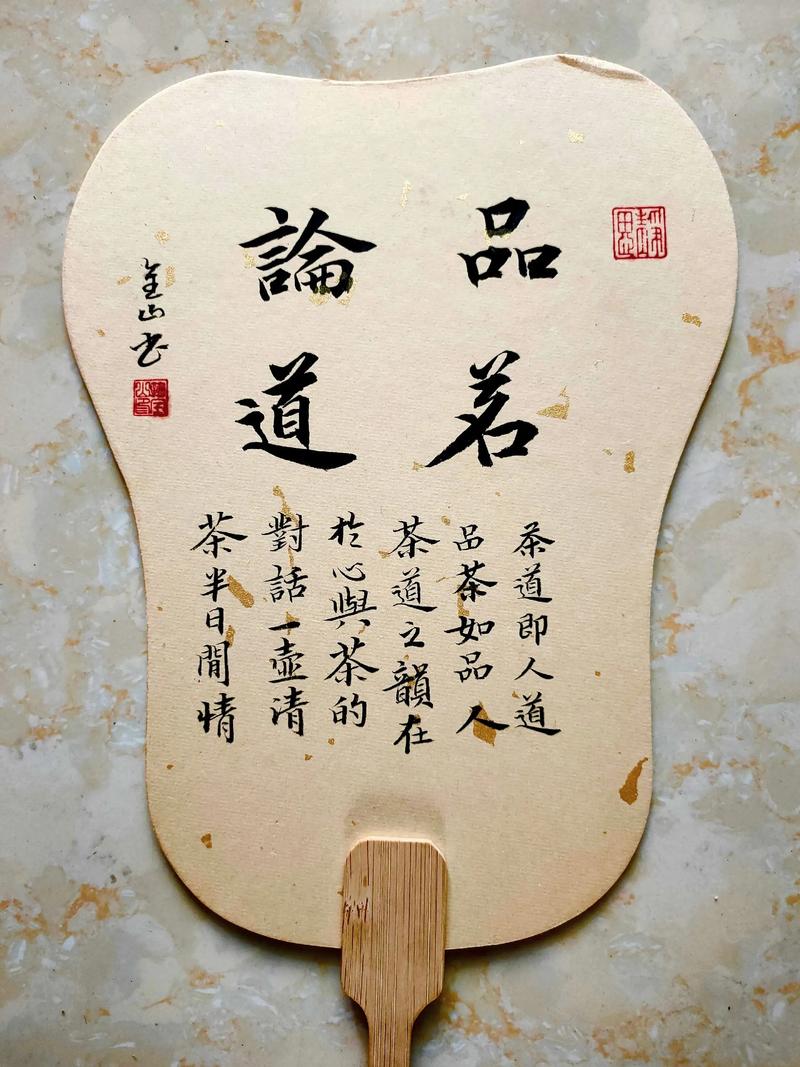 靜思
品茗
論道
茶道即人道
品茶如品人
茶道之韻在
於心與茶的
對話一壺清
茶半日閒情
金山书